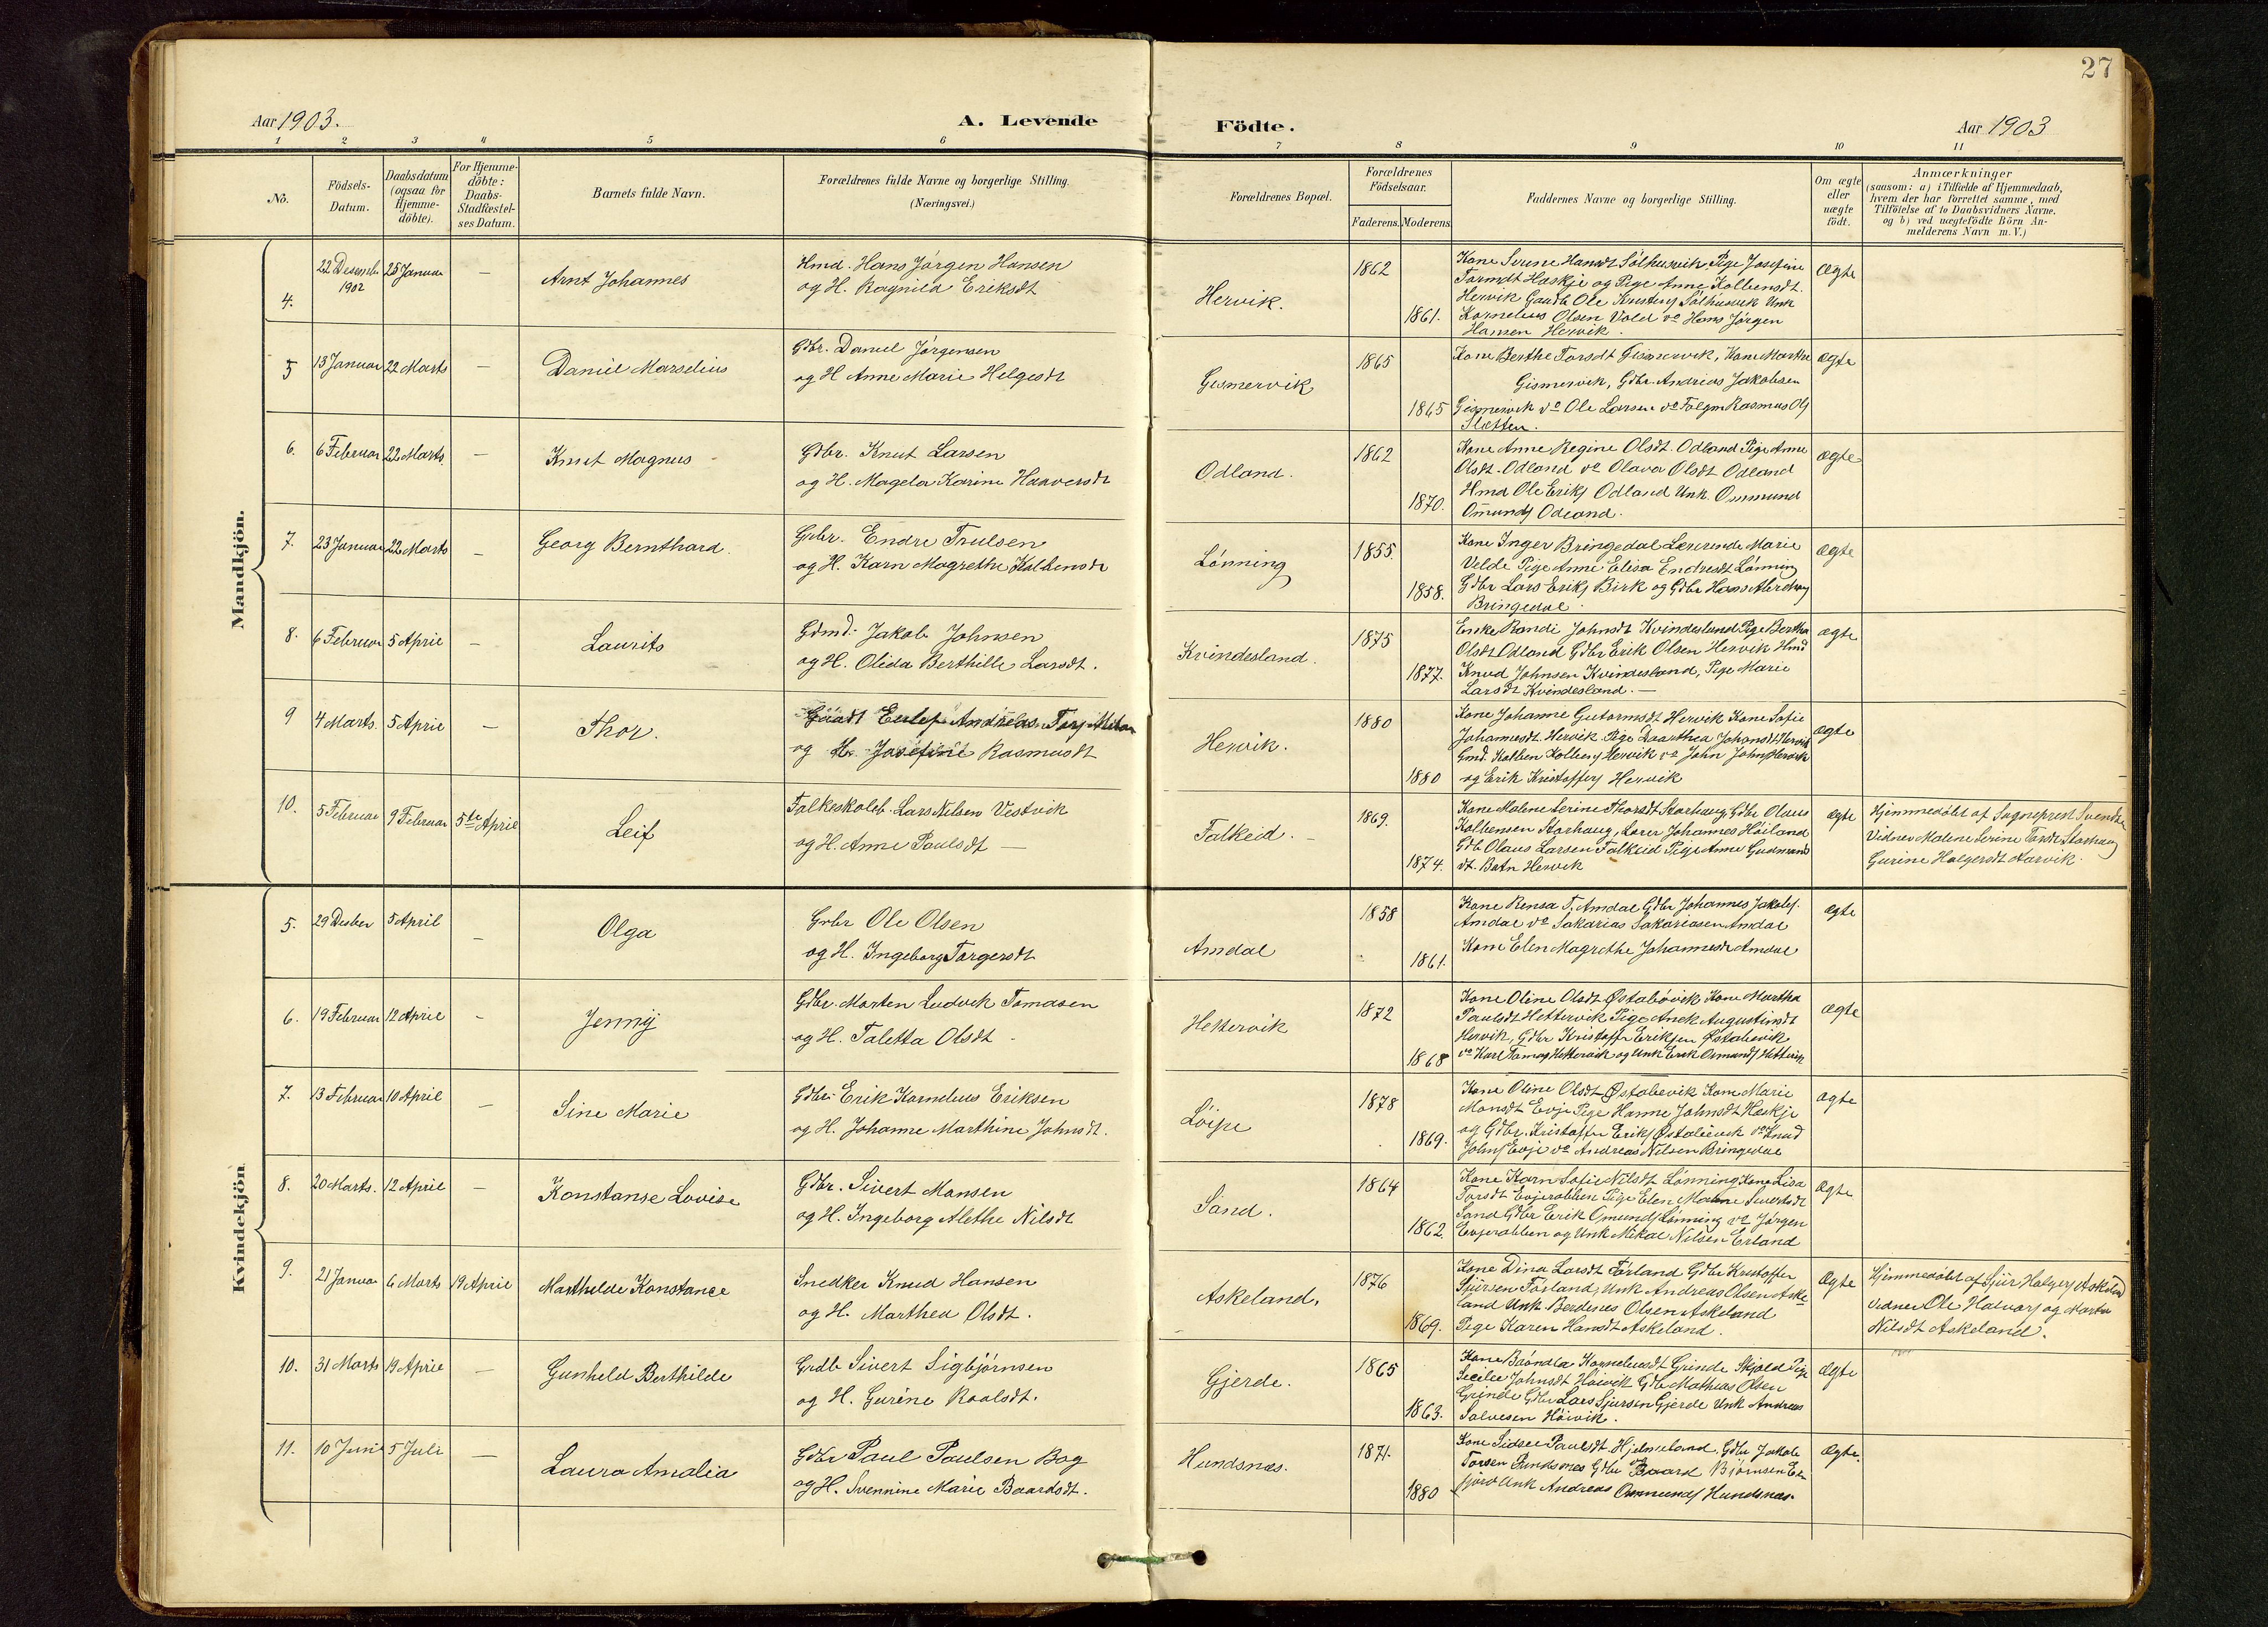 27
Aar 1903.
A. Levende
Födte.
Aar 1903
1 2 3 4 5 6 7 8 9 10 11
No.
Födsels-
Datum.
Daabsdatum
(ogsaa for
Hjemme-
döbte).
For Hjemme-
döbte:
Daabs-
Stadfæstel-
ses Datum.
Barnets fulde Navn.
Forældrenes fulde Navne og borgerlige Stilling.
(Næringsvei.)
Forældrenes Bopæl.
Forældrenes
Födselsaar.
Faderens. Moderens.
Faddernes Navne og borgerlige Stilling.
Om ægte
eller
uægte
födt.
Anmærkninger
(saasom: a) i Tilfælde af Hjemmedaab,
hvem der har forrettet samme, med
Tilföielse af to Daabsvidners Navne,
og b) ved uægtefödte Börn An-
melderens Navn m. V.)
Mandkjön.
4.
22 Desemb
1902
25 Januar
—
Arnt Johannes
Hmd. Hans Jørgen Hansen
og H. Ragnild Eriksdt
Hervik.
1862
1861.
Kone Serine Hansdt Sølhusvik, Pige Josefine
Tormdt Heskje og Pige Anne Kolbensdt.
Hervik Ole Sølhusvik Unk
Kornelius Olsen Vold do Hans Jørgen
Hansen Hervik.
Ægte
5
13 Januar
22 Marts
—
Daniel Marselius
Gbr. Daniel Jørgensen
og H Anne Marie Helgesdt
Gismervik
1865
1865
Kone Berthe Torsdt Gismervik, Kone Marthe
Gismervik, Gdbr. Andreas Jakobsen
Gismervik do Ole Larsen do Rasmus Ols
Sletten.
Ægte
6.
6 Februar
22 Marts.
—
Knut Magnus
Gdbr. Knut Larsen
og H. Magela Karine Haaversdt
Odland.
1862
1870.
Kone Anne Regine Olsdt. Odland Pige Anne
Olsdt. Odland do Olava Olsdt Odland
Hmd Ole Eriks Odland Unk. Ommund
Omunds Odland.
Ægte
7.
23 Januar
22 Marts
—
Georg Bernthard.
Grbr. Endre Trulsen
og H. Karn Magrethe Kolbensdt
Lønning
1855.
1858.
Kone Inger Bringedal Lærerinde Marie
Velde Pige Anne Elisa Endresdt Lønning
Gdbr Lars Eriks Birk og Gdbr Hans
Bringedal.
Ægte
8.
6 Februar
5 April
—
Laurits
Gdmd. Jakob Johnsen
og H. Olida Berthille Larsdt.
Kvindesland.
1875
1877.
Enke Randi Johnsdt Kvindesland Pige Bertha
Olsdt Odland Gdbr Erik Olsen Hervik Hmd
Knud Johnsen Kvindesland, Pige Marie
Larsdt Kvindesland. —
Ægte
9
4 Marts.
5 April
—
Thor.
Andreas
og H. Josefine Rasmusdt
Hervik.
1880
1880
Kone Johanne Gutormsdt Hervik Kone Sofie
Johannesdt. Hervik Pige Daarthea Johansdt Hervik
Gmd. Kolben Kolbens Hervik do John Johns Hervik
og Erik Kristoffers Hervik
Ægte
10.
5 Februar
9 Februar
5te April
Leif
Folkeskoleb. Lars Nilsen Vestvik
og H. Anne Paulsdt —
Falkeid. —
1869.
1874.
Kone Malene Serine Thorsdt Storhaug, Gdbr Olaus
Kolbensen Storhaug, Lærer Johannes Høiland
Gdb Olaus Larsen Falkeid Pige Anne Gudmund
dt. Hervik
Ægte
Hjemmedøbt af Sogneprest Svendsen
Vidner Malene Serine Torsdt Storhaug
Gurine Holgersdt Aarvik.
Kvindekjön
5.
29 Desber
5 April
—
Olga
Grbr Ole Olsen
og H. Ingeborg Torgersdt
Amdal
1858
1861.
Kone Rensa T. Amdal Gdbr Johannes Jakobs.
Amdal do Sakarias Sakariasen Amdal
Kone Elen Magrethe Johannesdt Amdal
Ægte
6.
19 Februar
12 April
-
Jenny
Gdbr. Morten Ludvik Tomasen
og H. Taletta Olsdt
Hettervik
1872
1868
Kone Oline Olsdt Østabøvik Kone Martha
Paulsdt Hettervik Pige Anek Augustinsdt
Hervik, Gdbr Kristoffer Eriksen Østabøvik
do Karl Tomas Hettervik og Unk Erik Osmunds Hettervik
Ægte
7.
13 Februar
10 April
—
Sine Marie
Gdbr. Erik Kornelius Eriksen
og H. Johanne Marthine Johnsdt.
Løipe
1878
1869.
Kone Oline Olsdt Østabøvik Kone Marie
Monsdt Evje Pige Hanne Johnsdt Heskje
og Gdbr. Kristoffer Eriks Østabøvik do Knud
Johns Evje do Andreas Nilsen Bringedal
Ægte
8.
20 Marts.
12 April
—
Konstanse Lovise
Gdbr. Sivert Monsen
og H. Ingeborg Alethe Nilsdt
Sand.
1864
1862.
Kone Karn Sofie Nilsdt Lønning Kone Lisa
Torsdt Evjerabben Pige Elen Malene Siversdt
Sand Gdbr Erik Omunds Lønning do Jørgen
Evjerabben og Unk Mikal Nilsen Erland
Ægte
9.
21 Januar
6 Marts
19 April
Marthilde Konstance
Snedker Knud Hansen
og H. Marthea Olsdt.
Askeland.
1876
1869.
Kone Dina Larsdt Førland Gdbr Kristoffer
Sjursen Førland, Unk Andreas Olsen Aske-
land Unk Berdenes Olsen Askeland
Pige Karen Hansdt Askeland.
Ægte
Hjemmedøbt af Sjur Holgers Askeland
Vidner Ole Halvors og Marta
Nilsdt Askeland.
10.
31 Marts
19 April
—
Gunheld Berthilde
Grdb Sivert Sigbjørnsen
og H. Gurine Roalsdt.
Gjerde.
1865
1863.
Kone Korneliusdt Grinde Skjold Pige
Secilie Johnsdt Høivik Gdb Mathias Olsen
Grinde Gdbr Lars Sjursen Gjerde Unk Andreas
Salvesen Høivik.
Ægte
11.
10 Juni
5 Juli
—
Laura Amalia
Gdbr Paul Paulsen Bog
og H. Svennine Marie Baardsdt.
Hundsnæs.
1871.
1880
Kone Sidsel Paulsdt. Hjelmeland. Gdbr Jakob
Torsen Hundsnes Gdbr Baard Bjørnsen Eik
fjord Unk Andreas Ommunds Hundsnæs.
Ægte.